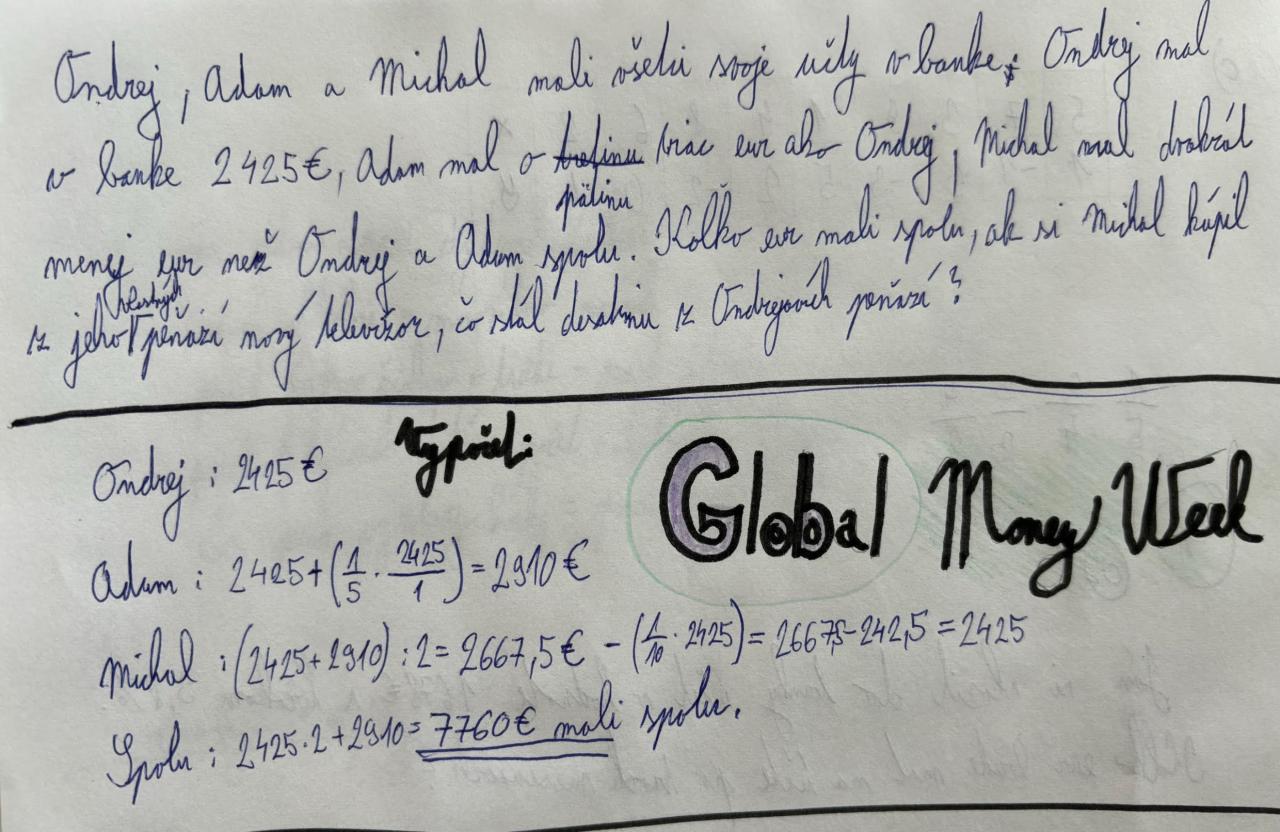 Ondrej, Adam a Michal mali všetci svoje účty v banke. Ondrej mal
v banke 2425€, Adam mal o tretinu viac eur ako Ondrej, Michal mal dvakrát
pätinu
menej eur než Ondrej a Adam spolu. Koľko eur mali spolu, ak si Michal kúpil
vlastných
z jeho peňazí nový televízor, čo stál desatinu z Ondrejových peňazí?
Výpočet:
Ondrej : 2425€
Global Money Week
Adam : 2425+(1/5 · 2425/1) = 2910€
Michal : (2425+2910) : 2 = 2667,5€ - (1/10 · 2425) = 2667,5-242,5 = 2425
Spolu : 2425·2+2910= 7760€ mali spolu.